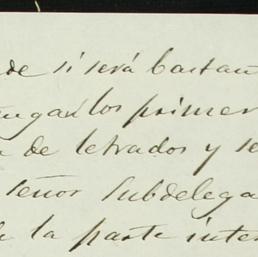 de si será bastan
los primer
de letrados y se
señor Subdelega
la parte inter